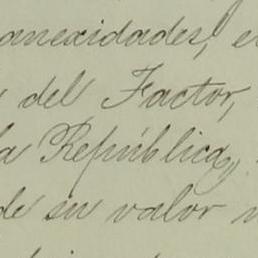 anexidades, e
del Factor,
la República,
de su valor